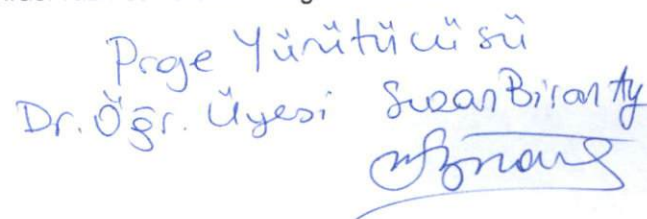 Proje Yürütücüsü
Dr. Öğr. Üyesi Suzan Biran Ay